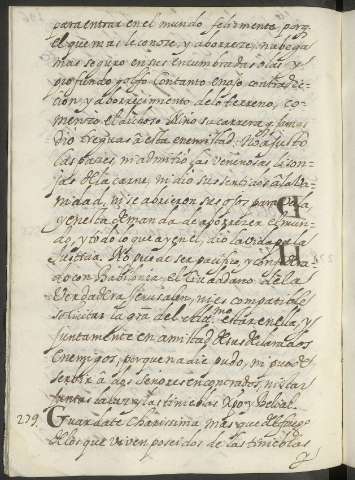 para entrar en el mundo felizmente, porq.
el que mas le conoze, y aborreze, nabega
mas seguro en sus encumbradas olas, y
profundo golfo. Con tanto enojo, contradic-
cion, y aborrecimiento de lo terreno, co-
menzo el dichoso Niño su carrera, y jamas
dio treguas a esta enemistad. No ajusto
las pazes, ni admitio las venenosas lison-
jas de la carne, ni dio sus sentidos a la va-
nidad, ni se abrieron sus ojos para verla,
y en esta demanda de aborrezer el mun-
do, y todo lo que ay en el, dio la vida por la
Justicia. No puede ser pacifico, y confedera-
do con Babilonia el Ciudadano de la
verdadera Jerusalen, ni es compatible
solicitar la gra. del Altmo. estar en ella, y
juntamente en amistad de sus declarados
Enemigos, porque nadie pudo, ni puede
servir a dos Señores encontrados, ni estar
juntas la luz y las tinieblas Xpo y Belial.
279. Guardate Charissima mas que del fuego
de los que viven poseidos de las tinieblas
y